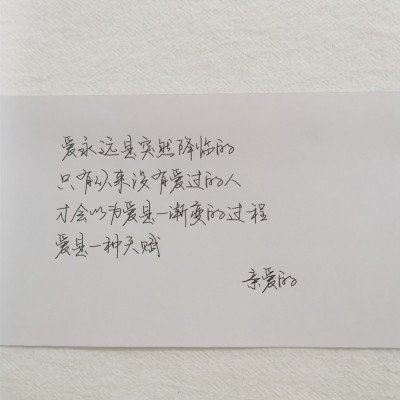 爱永远是突然降临的
只有从来没有爱过的人
才会以为爱是一渐变的过程
爱是一种天赋
亲爱的